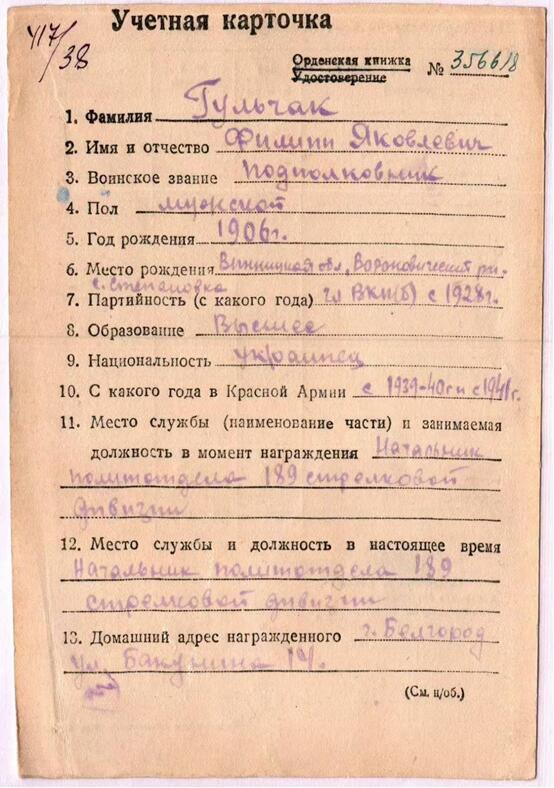 417/38
Учетная карточка
Орденская книжка
Удостоверение № 356618
1. Фамилия Гульчак
2. Имя и отчество Филипп Яковлевич
3. Воинское звание подполковник
4. Пол мужской
5. Год рождения 1906г.
6. Место рождения Винницкая обл, Вороновический р-н.
с. Степановка
7. Партийность (с какого года) чл ВКП(б) с 1928г.
8. Образование Высшее
9. Национальность украинец
10. С какого года в Красной Армии с 1939-40г и с 1941г.
11. Место службы (наименование части) и занимаемая
должность в момент награждения Начальник
политотдела 189 стрелковой
дивизии
12. Место службы и должность в настоящее время
Начальник политотдела 189
стрелковой дивизии
13. Домашний адрес награжденного г. Белгород
ул. Бакунина 14.
(См. н/об.)